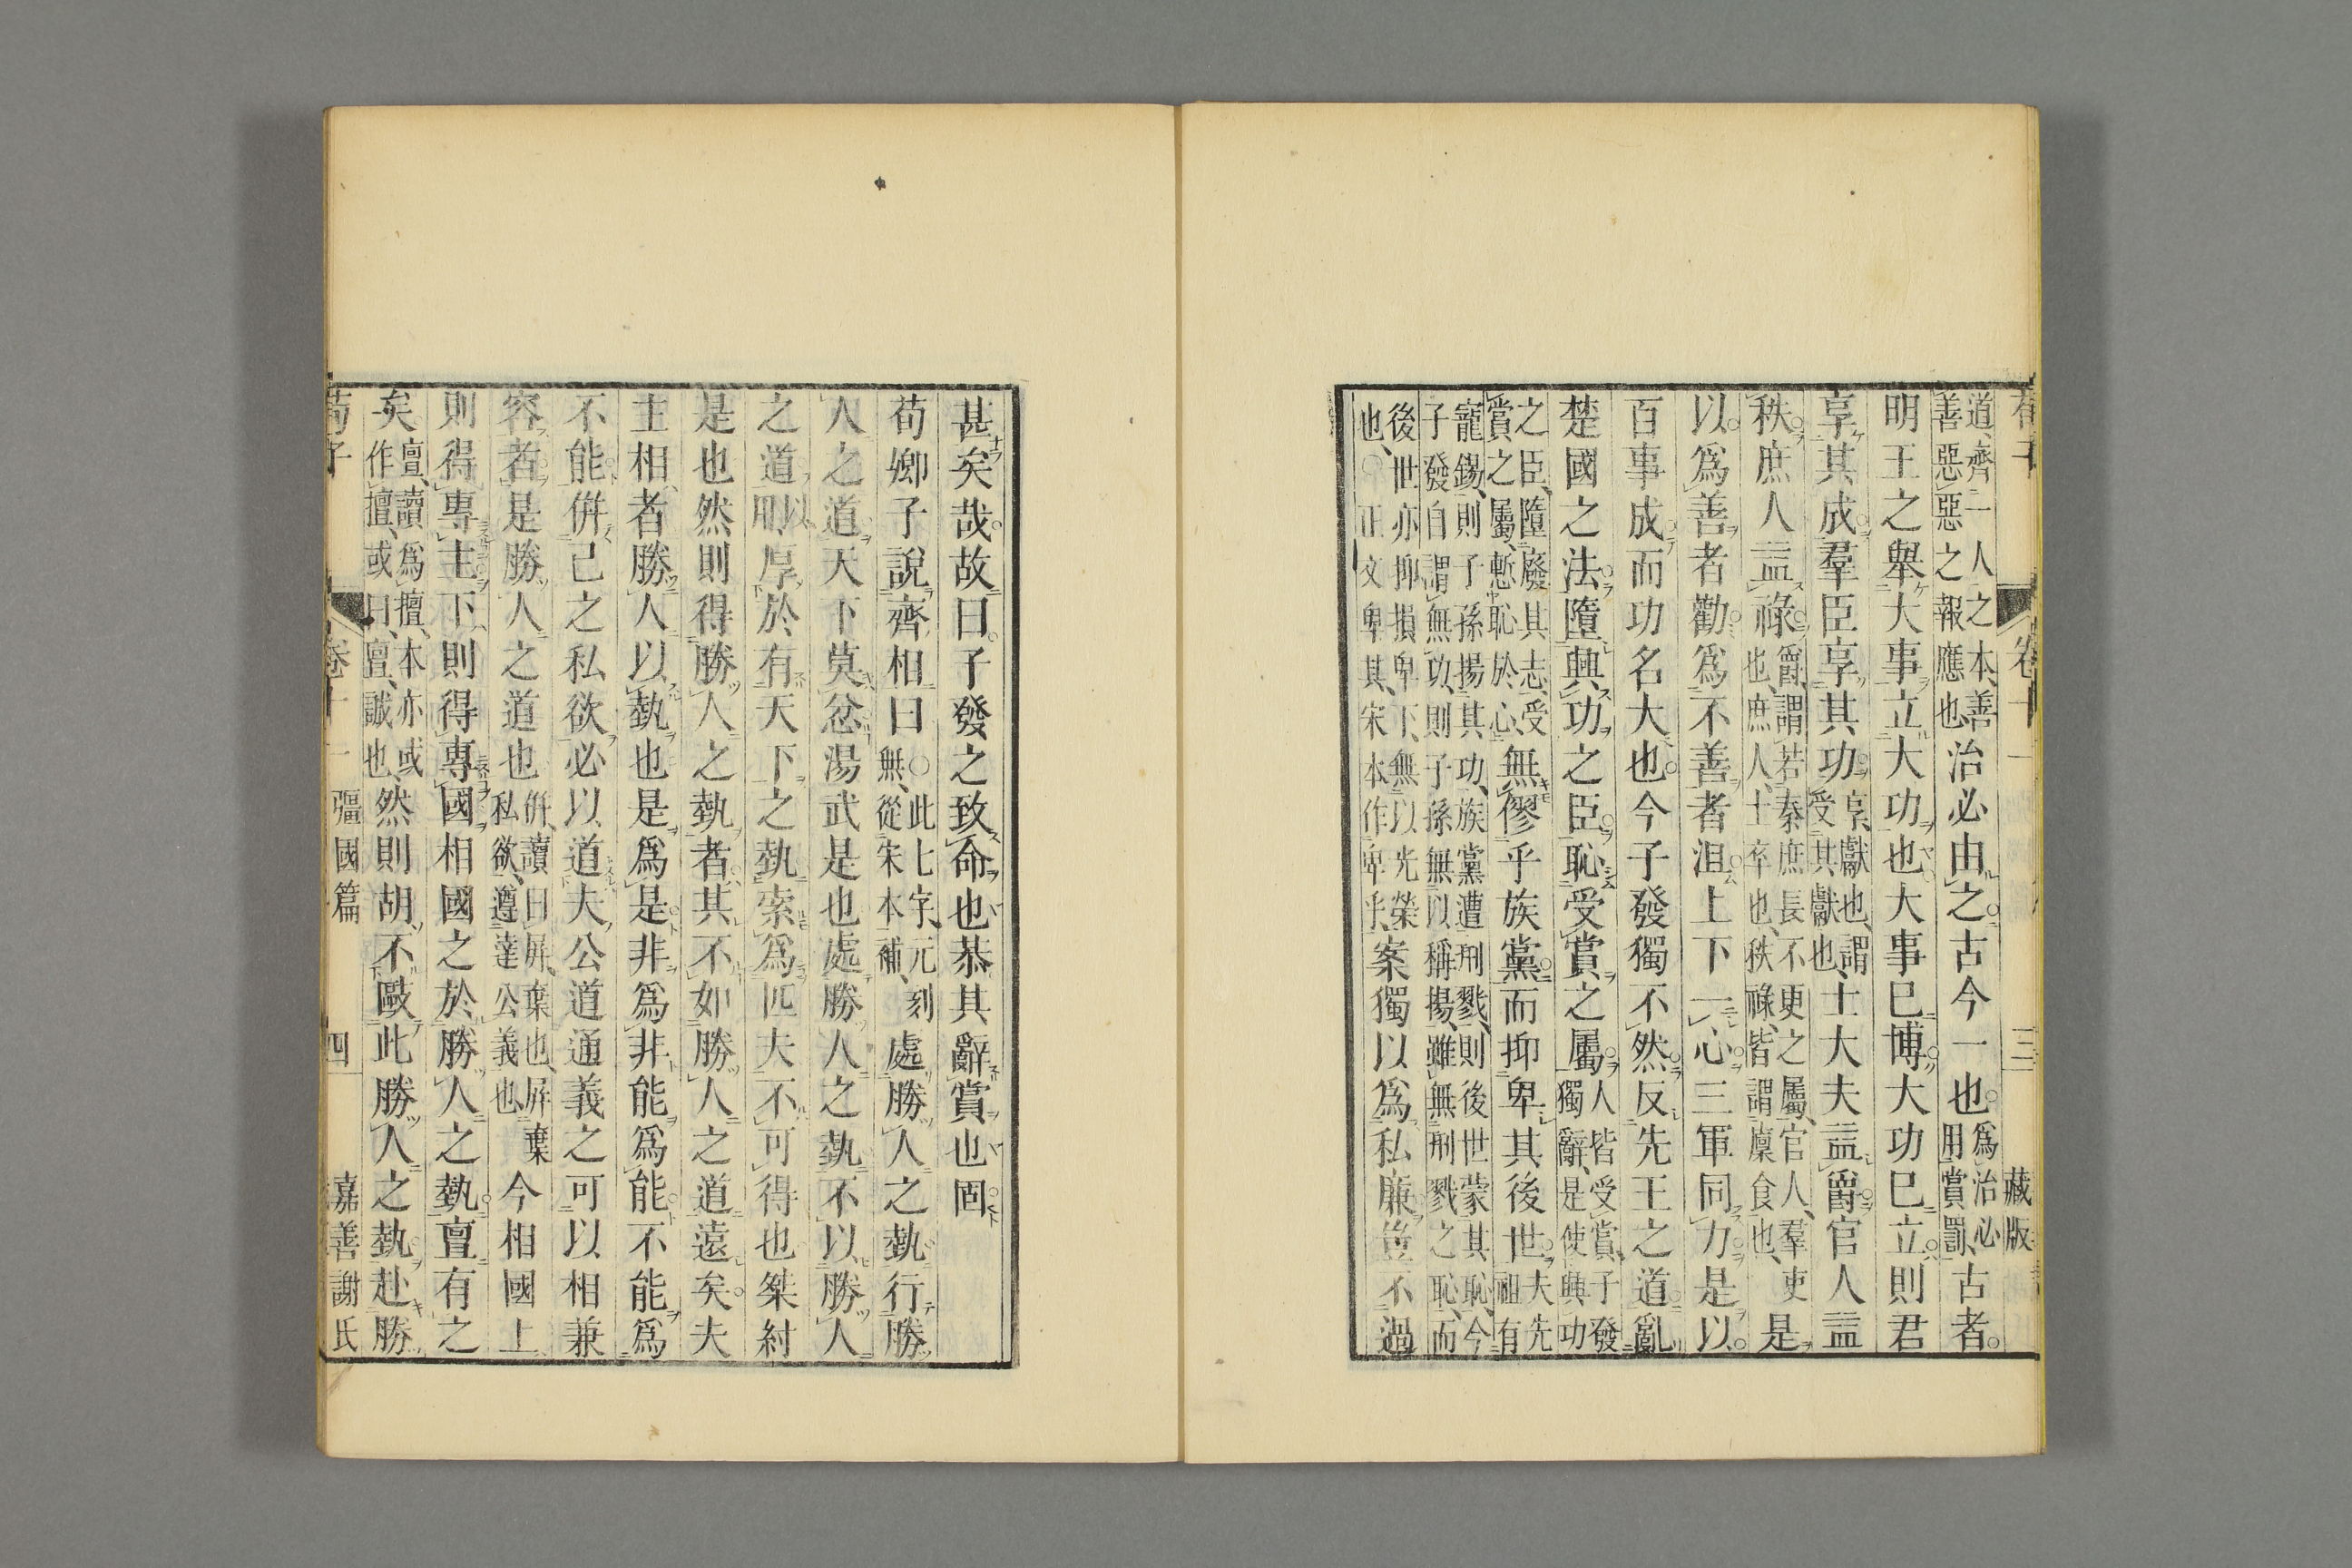 荀子　卷十一　三　藏版
道齊一人之本善善惡惡之報應也治必由之古今一也爲治必用賞罰古者
明王之舉大事立大功也大事已博大功已立則君
享其成羣臣享其功享獻也謂受其獻也士大夫益爵官人益
秩庶人益祿爵謂若秦庶長不更之屬官人羣吏也庶人士卒也秩祿皆謂廩食也是
以爲善者勸爲不善者沮上下一心三軍同力是以
百事成而功名大也今子發獨不然反先王之道亂
楚國之法墮興功之臣恥受賞之屬人皆受賞子發獨辭是使興功
之臣墮廢其志受賞之屬慙恥於心無僇乎族黨而抑卑其後世夫先祖有
寵錫則子孫揚其功族黨遭刑戮則後世蒙其恥今子發自謂無功則子孫無以稱揚雖無刑戮之恥而
後世亦抑損卑下無以光榮也○正文卑其宋本作卑乎案獨以爲私廉豈不過
甚矣哉故曰子發之致命也恭其辭賞也固
荀卿子說齊相曰○此七字元刻無從宋本補處勝人之埶行勝
人之道天下莫忿湯武是也處勝人之埶不以勝人
之道以明厚於有天下之埶索爲匹夫不可得也桀紂
是也然則得勝人之埶者其不如勝人之道遠矣夫
主相者勝人以埶也是爲是非爲非能爲能不能爲
不能併己之私欲必以道夫公道通義之可以相兼
容者是勝人之道也併讀曰屏棄也屏棄私欲遵達公義也今相國上
則得專主下則得專國相國之於勝人之埶亶有之
矣亶讀爲擅本亦或作擅或曰亶誠也然則胡不敺此勝人之埶赴勝
荀子　卷十一　彊國篇　四　嘉善謝氏